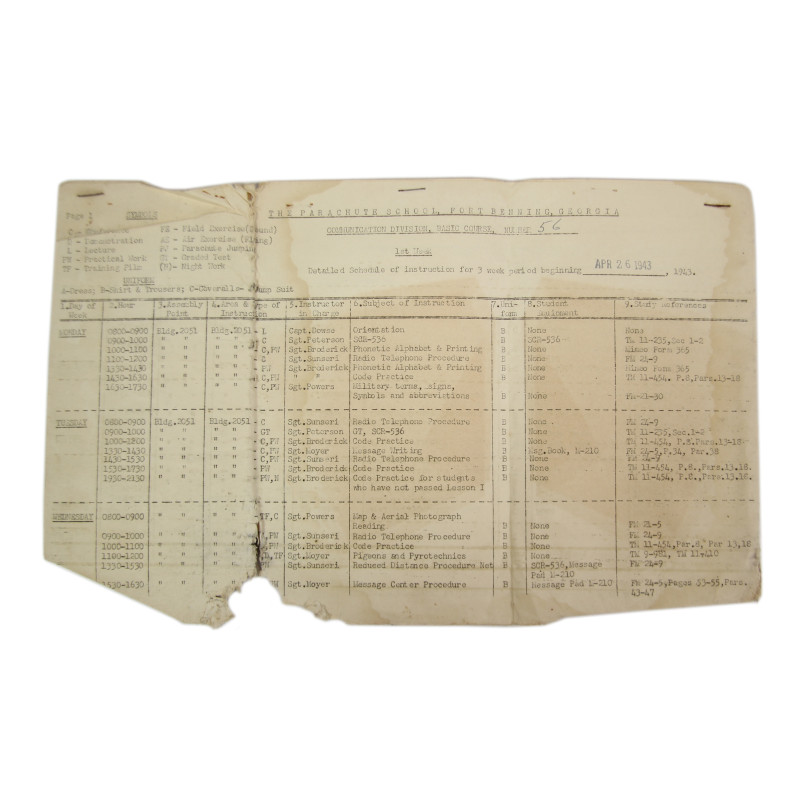 THE PARACHUTE SCHOOL, FORT BENNING, GEORGIA
Page 1 SYMBOLS
COMMUNICATION DIVISION, BASIC COURSE, 56
C - Conference FE - Field Exercise(Ground)
D - Demonstration AE - Air Exercise (Flying)
L - Lecture PJ - Parachute Jumping
1st Week
PW - Practical Work GT - Graded Test
TF - Training Film (N)- Night Work
Detailed Schedule of Instruction for 3 week period beginning APR 26 1943, 1943.
UNIFORM
A-Dress; B-Shirt & Trousers; C-Coveralls- Jump Suit
1.Day of Week 2.Hour 3.Assembly Point 4.Area & Type of Instruction 5.Instructor in Charge 6.Subject of Instruction 7.Uniform 8.Student Equipment 9.Study References
MONDAY 0800-0900 Bldg.2051 Bldg.2051 - L Capt.Downs Orientation B None None
0900-1000 " " " " - C Sgt.Peterson SCR-536 B SCR-536 TM 11-235,Sec 1-2
1000-1100 " " " " - C,PW Sgt.Broderick Phonetic Alphabet & Printing B None Mimeo Form 365
1100-1200 " " " " - C Sgt.Sunseri Radio Telephone Procedure B None FM 24-9
1330-1430 " " " " - PW Sgt.Broderick Phonetic Alphabet & Printing B None Mimeo Form 365
1430-1630 " " " " - C,PW " " Code Practice B None TM 11-454, P.8,Pars.13-18
1630-1730 " " " " - C,PW Sgt.Powers Military terms, signs,
Symbols and abbreviations B None FM 21-30
TUESDAY 0800-0900 Bldg.2051 Bldg.2051 - C Sgt.Sunseri Radio Telephone Procedure B None FM 24-9
0900-1000 " " " " - GT Sgt.Peterson GT, SCR-536 B None TM 11-235,Sec.1-2
1000-1200 " " " " - C,PW Sgt.Broderick Code Practice B None TM 11-454, P.8.Pars.13-18
1330-1430 " " " " - C,PW Sgt.Moyer Message Writing B Msg.Book, M-210 FM 24-5, P.34, Par.38
1430-1530 " " " " - C,PW Sgt.Sunseri Radio Telephone Procedure B None FM 24-9
1530-1730 " " " " - PW Sgt.Broderick Code Practice B None TM 11-454, P.8., Pars.13-18.
1930-2130 " " " " - PW,N Sgt.Broderick Code Practice for students B None TM 11-454, P.8., Pars.13-18.
who have not passed lesson I
WEDNESDAY 0800-0900 " " " " - TF,C Sgt.Powers Map & Aerial Photograph
Reading B None FM 21-5
0900-1000 " " " " PW Sgt.Sunseri Radio Telephone Procedure B None FM 24-9
1000-1100 " " " " PW Sgt.Broderick Code Practice B None TM 11-454,Par.8, Par 13,18
1100-1200 " " " " PW,TF Sgt.Powers Pigeons and Pyrotechnics B None TM 9-981, TM 11-410
1330-1530 " " " " Sgt.Sunseri Reduced Distance Procedure Net B SCR-536,Message FM 24-9
Pad M-210
1530-1630 " " " " Sgt.Moyer Message Center Procedure B Message Pad M-210 FM 24-5,Pages 53-55,Pars.
43-47